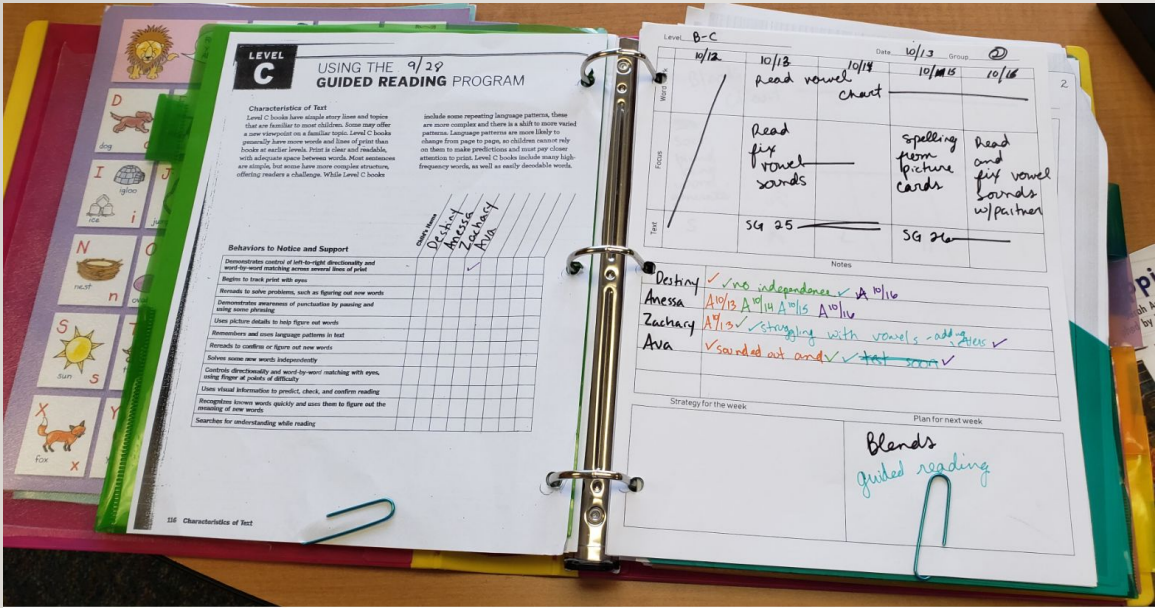 D
dog
I
igloo
ice
i
J
N
O
nest
n
S
sun
s
X
Y
fox
x
LEVEL
C
USING THE 9/28
GUIDED READING PROGRAM
Characteristics of Text
Level C books have simple story lines and topics
that are familiar to most children. Some may offer
a new viewpoint on a familiar topic. Level C books
generally have more words and lines of print than
books at earlier levels. Print is clear and readable,
with adequate space between words. Most sentences
are simple, but some have more complex structure,
offering readers a challenge. While Level C books
include some repeating language patterns, these
are more complex and there is a shift to more varied
patterns. Language patterns are more likely to
change from page to page, so children cannot rely
on them to make predictions and must pay closer
attention to print. Level C books include many high-
frequency words, as well as easily decodable words.
Child's Name
Destiny
Anessa
Zachary
Ava
Behaviors to Notice and Support
Demonstrates control of left-to-right directionality and
word-by-word matching across several lines of print
Begins to track print with eyes
Rereads to solve problems, such as figuring out new words
Demonstrates awareness of punctuation by pausing and
using some phrasing
Uses picture details to help figure out words
Remembers and uses language patterns in text
Rereads to confirm or figure out new words
Solves some new words independently
Controls directionality and word-by-word matching with eyes,
using finger at points of difficulty
Uses visual information to predict, check, and confirm reading
Recognizes known words quickly and uses them to figure out the
meaning of new words
Searches for understanding while reading
116 Characteristics of Text
Level B-C
Date 10/13 Group 2
10/12 10/13 10/14 10/15 10/16
Word
Read vowel
chart
Focus
Read
fix
vowel
sounds
spelling
from
picture
cards
Read
and
fix vowel
sounds
w/partner
Text
SG 25
SG 26
Notes
Destiny ✓ ✓ no independence ✓ A 10/16
Anessa A 10/13 A 10/14 A 10/15 A 10/16
Zachary A 9/13 ✓ ✓ struggling with vowels - adding ✓
Ava ✓ sounded out and ✓ ✓ test soon ✓
Strategy for the week
Plan for next week
Blends
guided reading
2